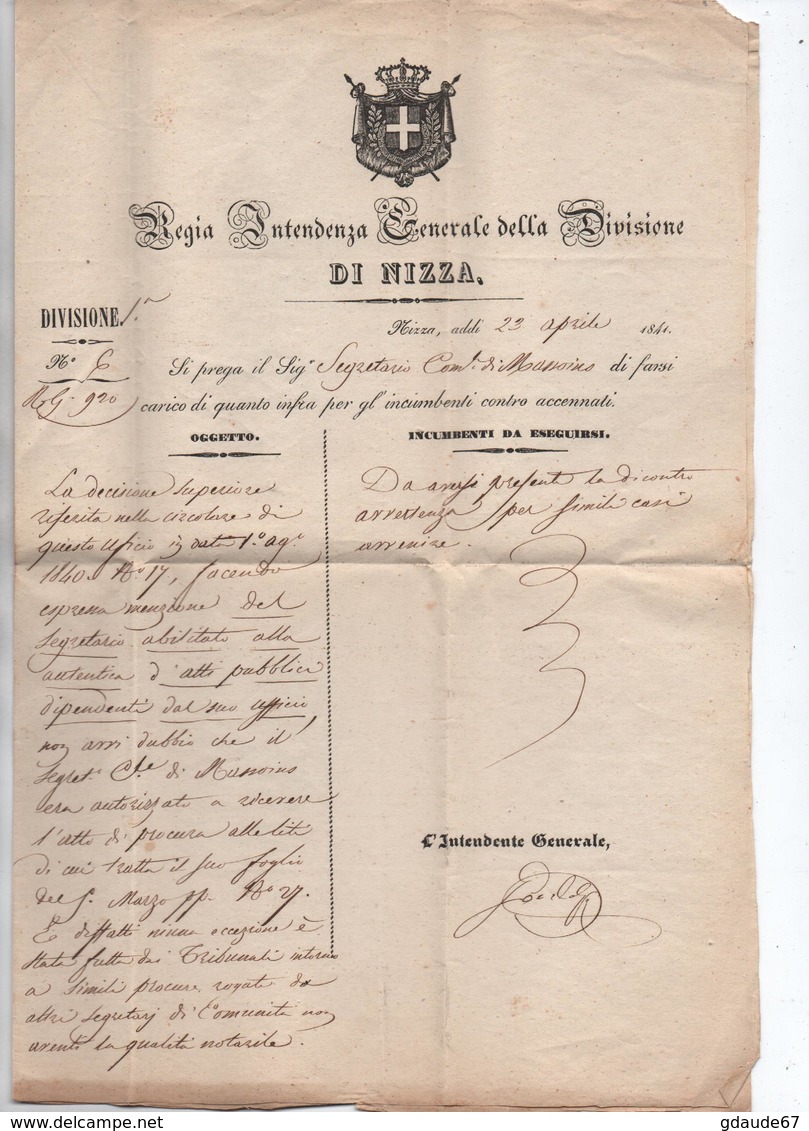 Regia Intendenza Generale della Divisione
DI NIZZA.
DIVISIONE 1.a
Nizza, addì 23 aprile 1841.
N.° 6
Si prega il Sig.r Segretario Com.le di Massoins di farsi
R.G. 920
carico di quanto infra per gl'incumbenti contro accennati.
OGGETTO.
La decisione superiore
riferita nella circolare di
questo Ufficio in data 1.° ag.o
1840. N.o 17, facendo
espressa menzione del
segretario abilitato alla
autentica d'atti pubblici
dipendenti dal suo ufficio,
non avvi dubbio che il
Segret.o C.le di Massoins
era autorizzato a ricevere
l'atto di procura alle liti
di cui tratta il suo foglio
del 1. Marzo pp. N.o 27.
E diffatti niuna eccezione è
stata fatta dai Tribunali intorno
a simili procure rogate da
altri segretarj di Comunità non
aventi la qualità notarile.
INCUMBENTI DA ESEGUIRSI.
Da aversi presente la dicontro
avvertenza per simili casi
avvenire.
L'Intendente Generale,
© gdaude67